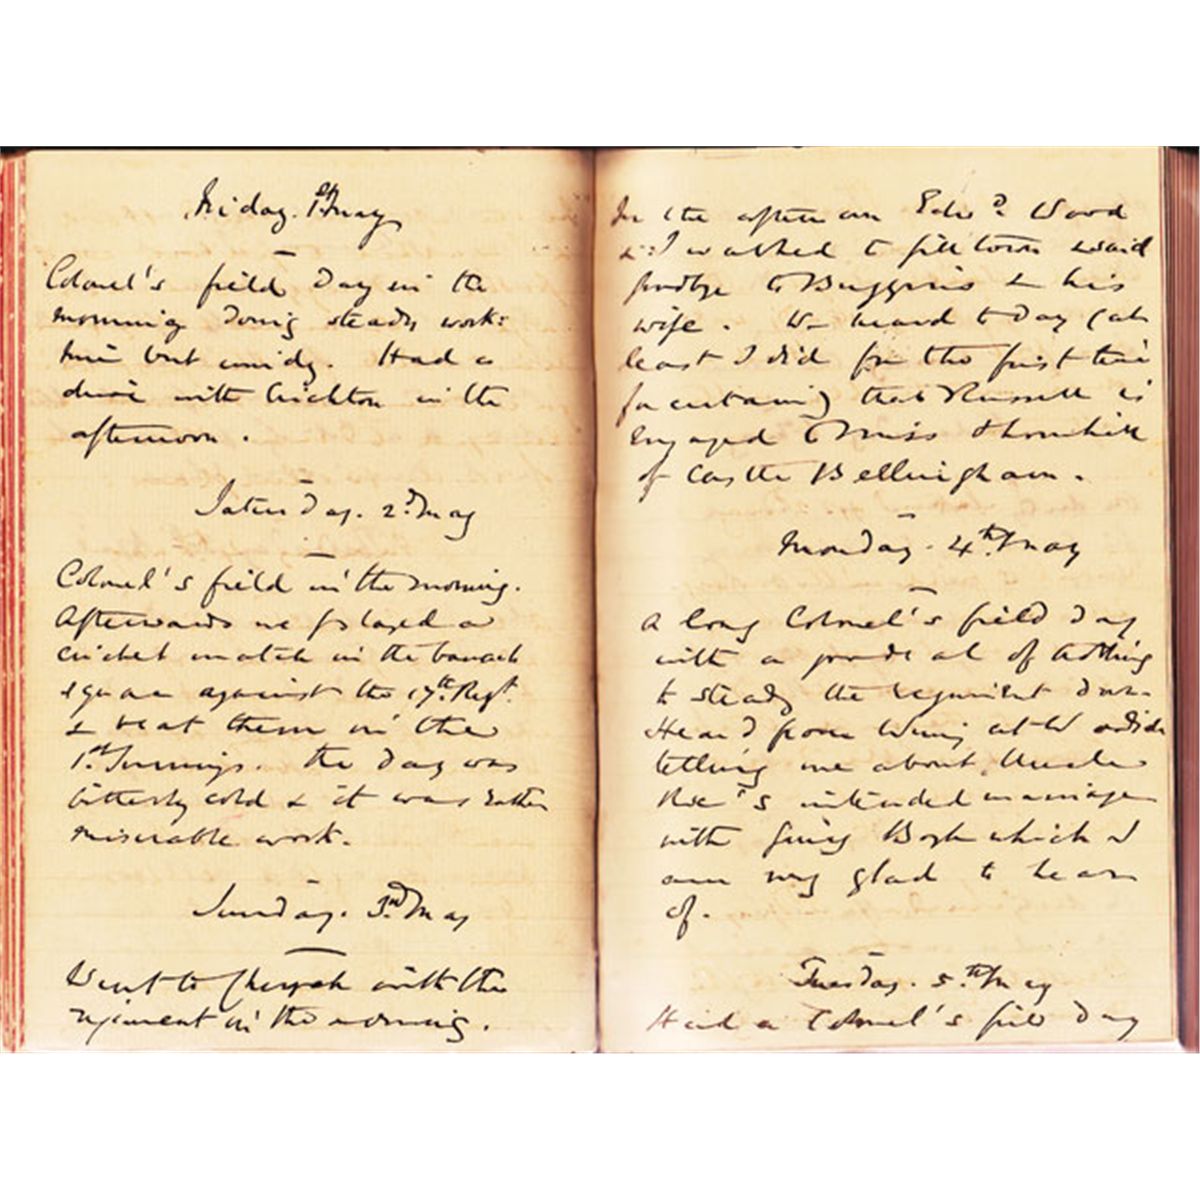 Friday. 1st May
Colonel's field Day in the
morning doing steady work:
fine but windy. Had a
drive with Crichton in the
afternoon.
Saturday. 2d. May
Colonel's field in the morning.
Afterwards we played a
cricket match in the barrack
square against the 17th. Regt.
& beat them in the
1st Innings. The day was
bitterly cold & it was rather
miserable work.
Sunday. 3rd May
Went to Church with the
regiment in the morning.
In the afternoon Edwd Wood
& I walked to town & said
goodbye to Buggins & his
wife. We heard to day (at
least I did for the first time
for certain) that Russell is
engaged to Miss Thornhill
of Castle Bellingham.
Monday. 4th. May
A long Colonel's field day
with a good deal of trotting
to steady the regiment down.
Heard from
telling me about Uncle
intended marriage
with which I
am very glad to hear
of.
Tuesday. 5th May
Had a Colonel's field day